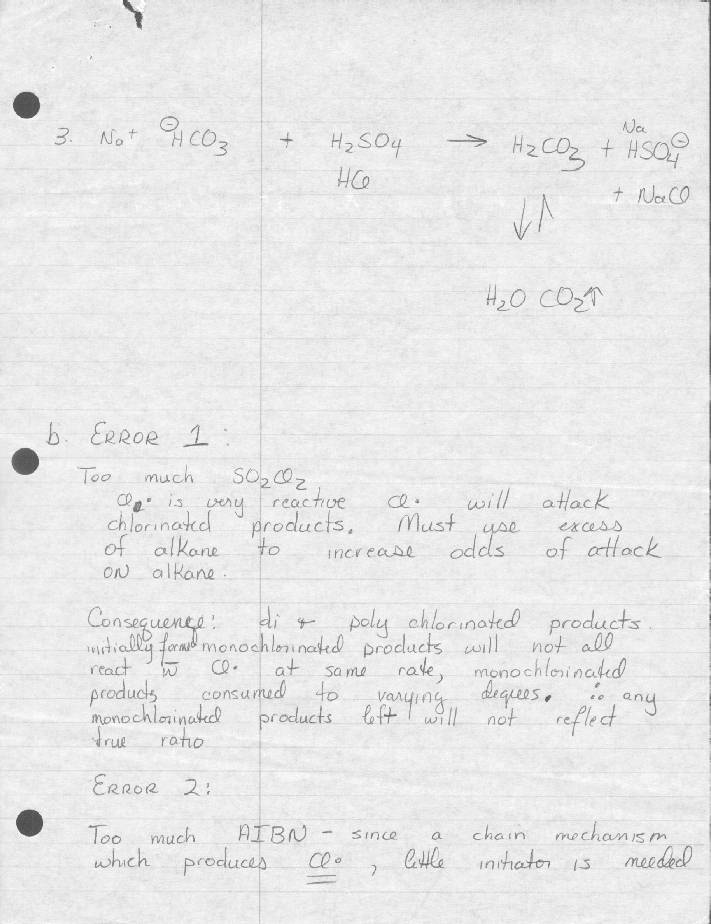 3. Na+ ⊖HCO3 + H2SO4 → H2CO3 + NaHSO4⊖
HCl + NaCl
↓↑
H2O CO2↑
b. ERROR 1:
Too much SO2Cl2
Cl• is very reactive Cl• will attack
chlorinated products. Must use excess
of alkane to increase odds of attack
ON alkane.
Consequence: di & poly chlorinated products.
initially formed monochlorinated products will not all
react w̅ Cl• at same rate, monochlorinated
products consumed to varying degrees. ∴ any
monochlorinated products left will not reflect
true ratio
ERROR 2:
Too much AIBN - since a chain mechanism
which produces Cl•, little initiator is needed